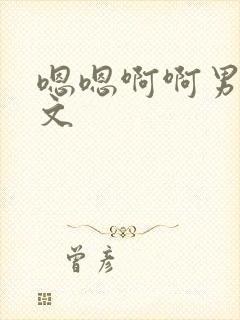 嗯嗯啊啊男
文
曾彦